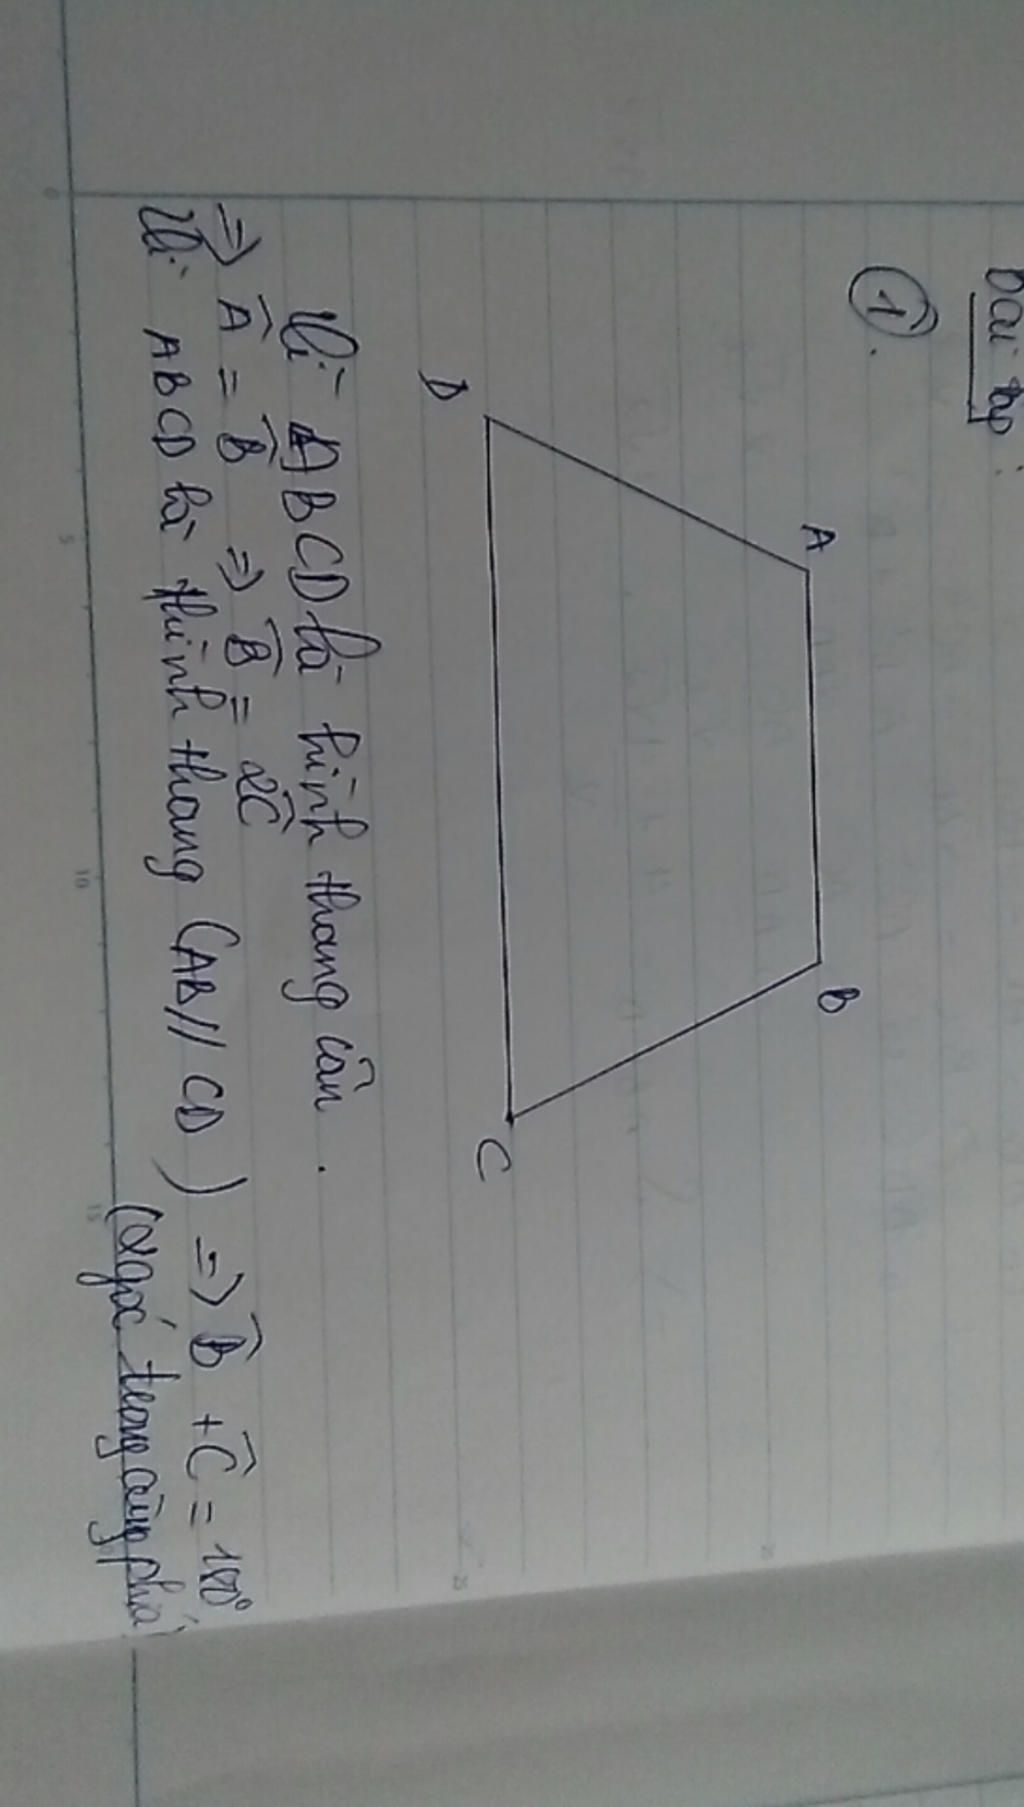 Bài tập:
①.
A
B
D
C
Vì ABCD là hình thang cân.
=> Â = B̂ => B̂ = 2Ĉ
Vì ABCD là hình thang (AB // CD) => B̂ + Ĉ = 180°
(2 góc trong cùng phía)